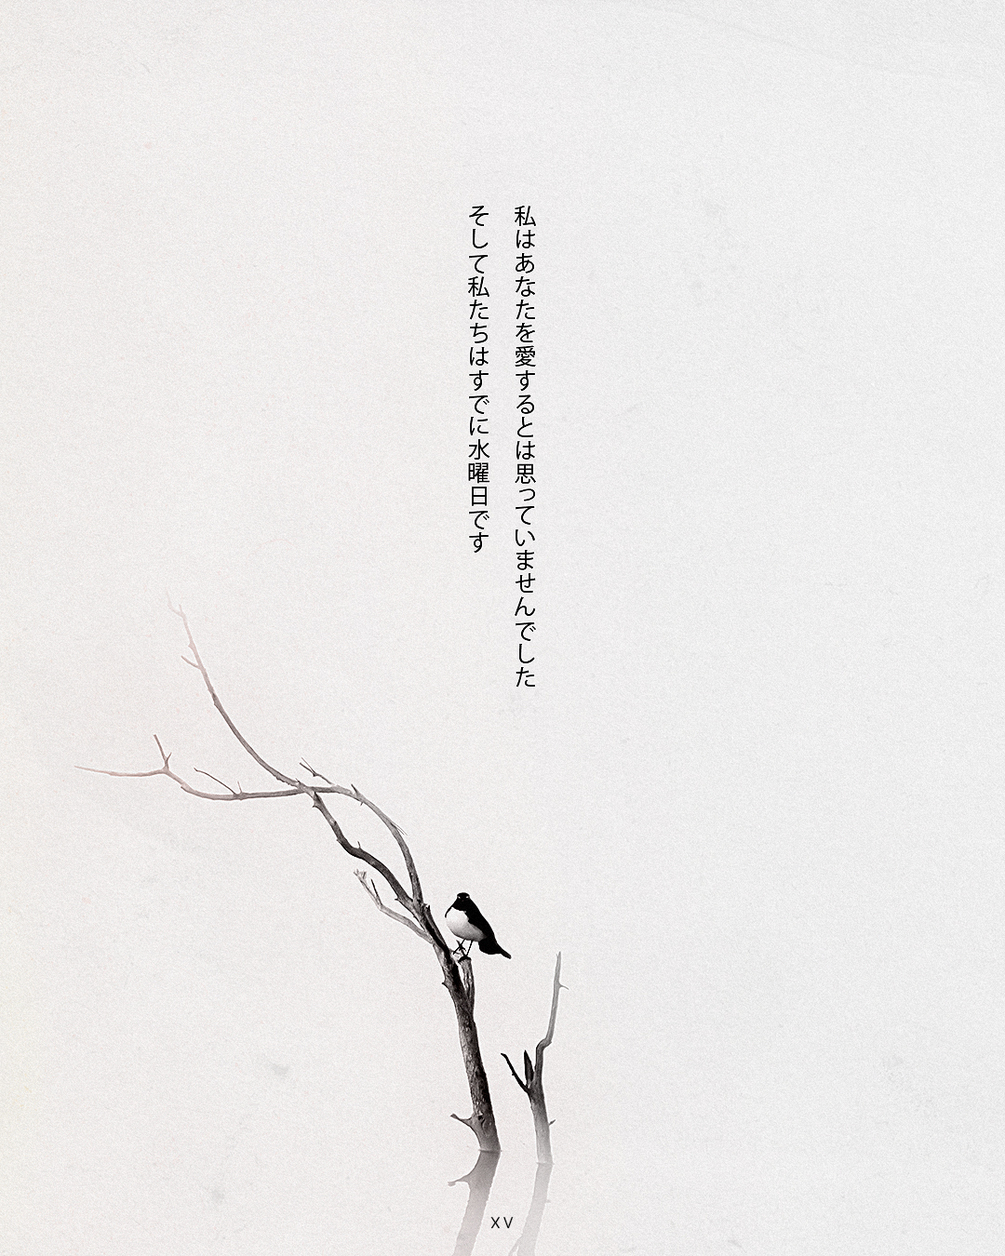 私はあなたを愛するとは思っていませんでした
そして私たちはすでに水曜日です
XV